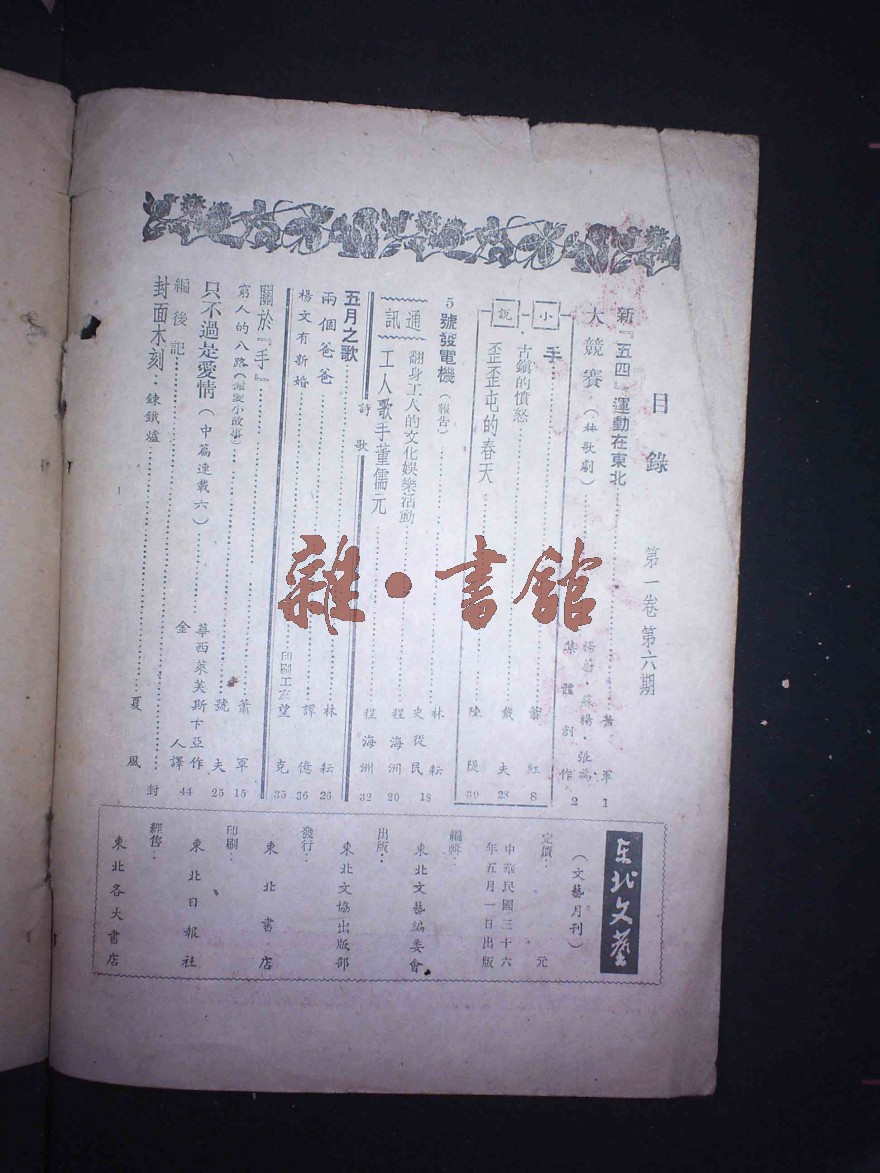 目錄 第一卷第六期
新『五四』運動在東北 蕭軍 1
大競賽（秧歌劇） 集體創作 2
小說
手 蕭紅 8
古鎮的憤怒 戴夫 28
歪歪屯的春天 陳隄 39
5號發電機（報告） 林耘 18
通訊
翻身工人的文化娛樂活動 史從民
工人歌手董儒元 程海洲 20
詩歌
五月之歌 程海洲 32
兩個爸爸 林耘 26
楊文有新婚 譚億 36
印刷工友望克 35
關於『手』 蕭軍 15
窮人的八路 號夫 25
只不過是愛情（中篇連載六） 華西萊芙斯卡亞作 金人譯 44
編後記
封面木刻：鍊鐵爐 夏風 封
东北文艺
（文藝月刊）
定價： 元
中華民國三十六年五月一日出版
編輯：
東北文藝編委會
出版：
東北文協出版部
發行：
東北書店
印刷：
東北日報社
經售：
東北各大書店
雜·書館